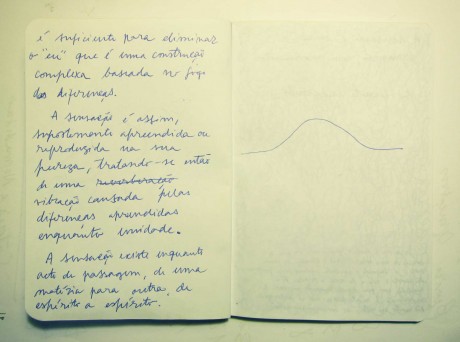 é suficiente para eliminar
o "eu" que é uma construção
complexa baseada no jogo
das diferenças.
A sensação é assim,
supostamente apreendida ou
reproduzida na sua
pureza, tratando-se então
de uma reverberação
vibração causada pelas
diferenças aprendidas
enquanto unidade.
A sensação existe enquanto
acto de passagem, de uma
matéria para outra, de
espírito a espírito.